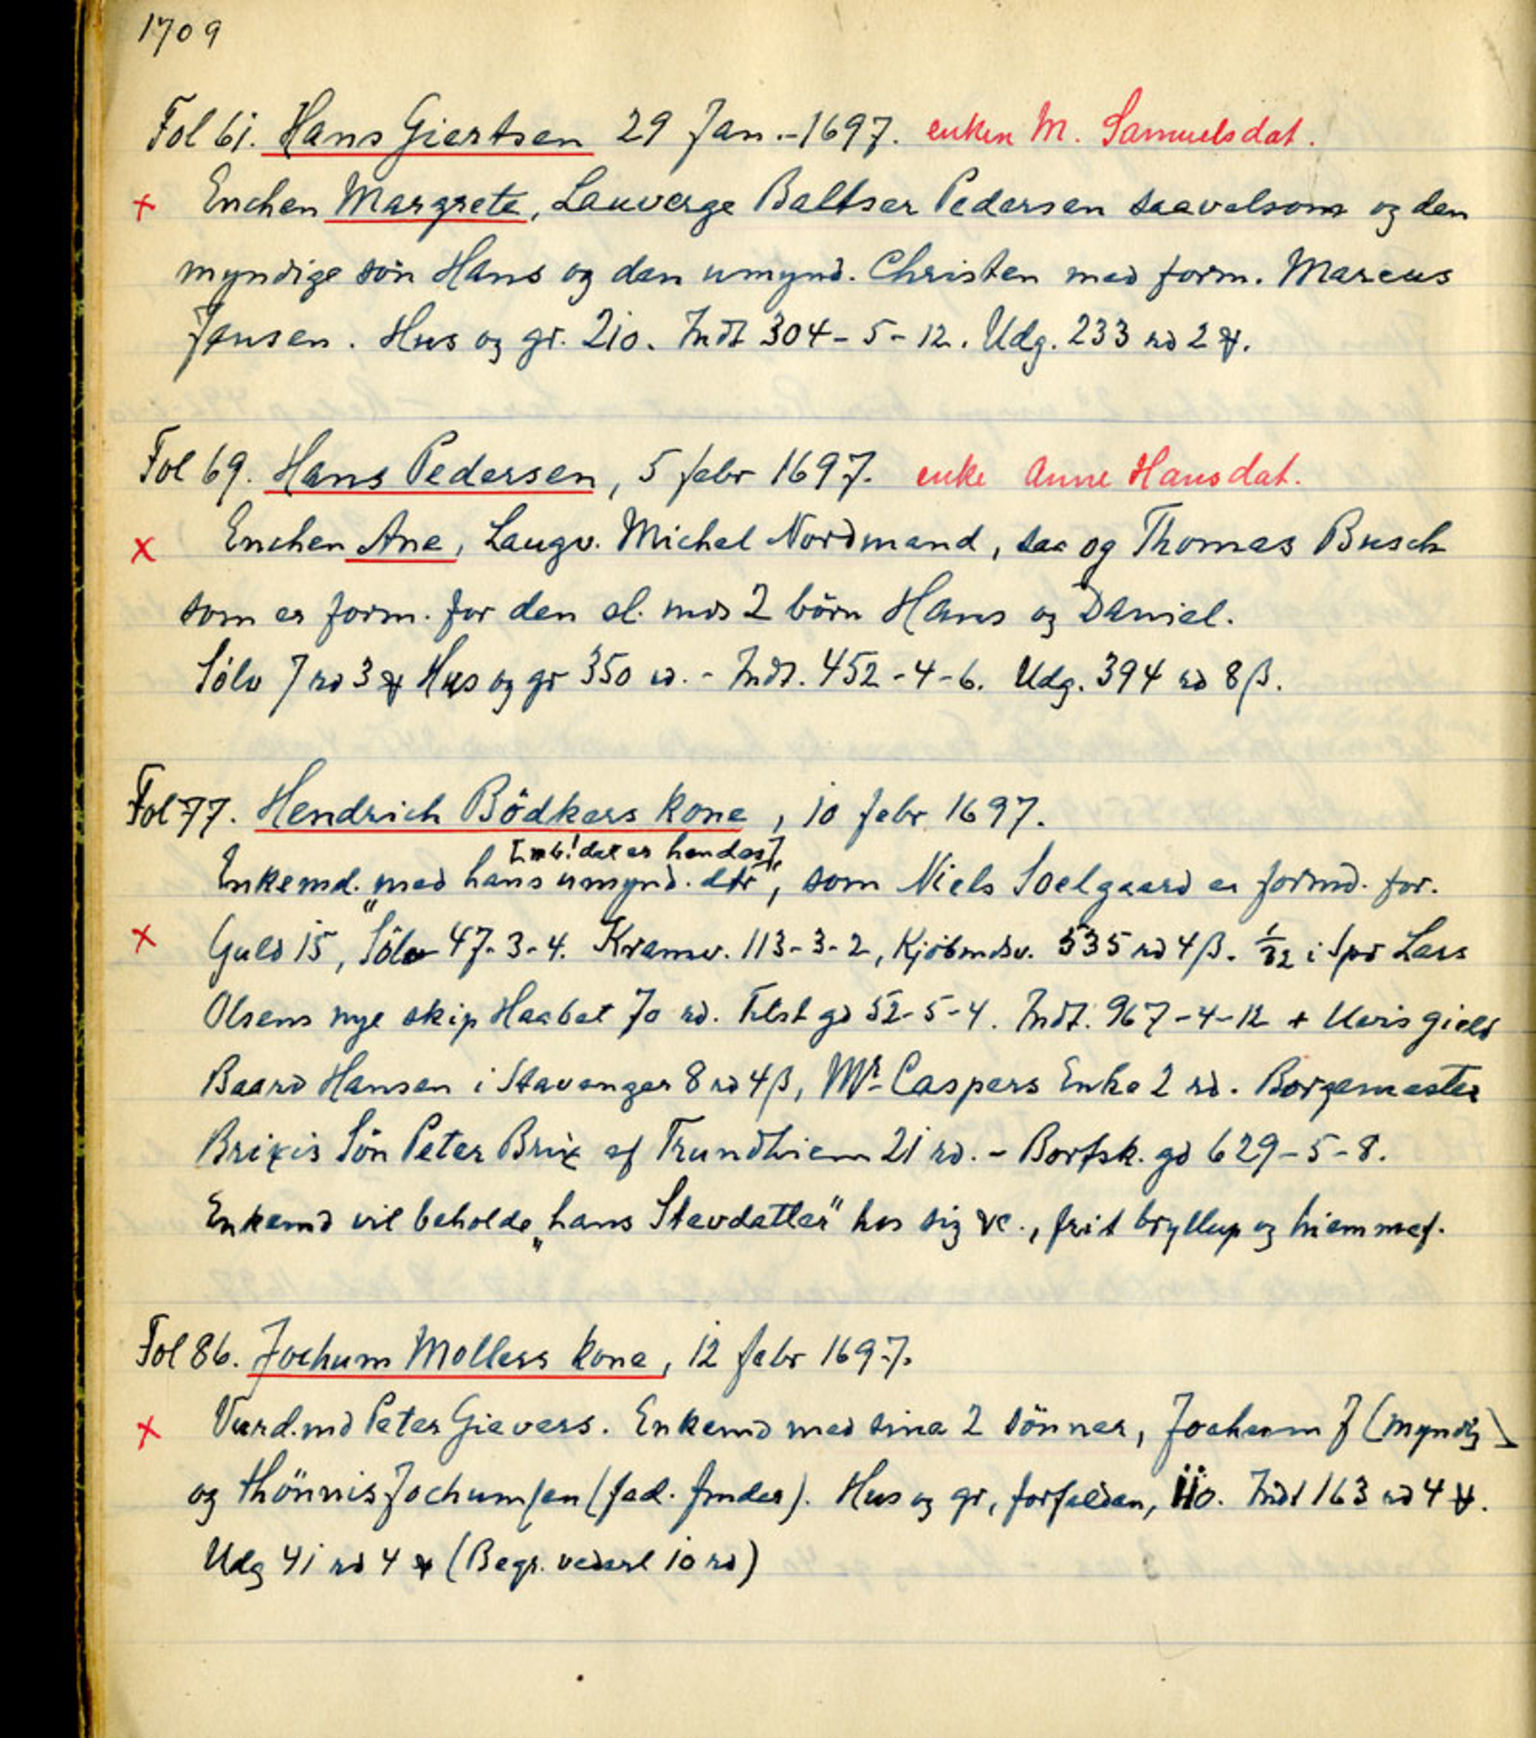 1709
Fol 61. Hans Giertsen 29 Jan.-1697. enken M. Samuelsdat.
x Enchen Margrete, Lauverge Baltser Pedersen saavelsom og den
myndige sön Hans og den umynd. Christen med form. Marcus
Jensen. Hus og gr. 210. Indt 304-5-12. Udg. 233 rd 2 ꝟ.
Fol 69. Hans Pedersen, 5 febr 1697. enke Anne Hansdat.
x Enchen Ane, Laugv. Michel Nordmand, saa og Thomas Busch
som er form. for den sl. mds 2 börn Hans og Daniel.
Sölv 7 rd 3 ꝟ Hus og gr 350 rd. - Indt. 452-4-6. Udg. 394 rd 8 β.
Fol 77. Hendrich Bödkers kone, 10 febr 1697.
[nb! det er hendes]
Enkemd. med „hans umynd. dtr", som Niels Soelgaard er formd. for.
x Guld 15, Sölv 47-3-4. Kramv. 113-3-2, Kjöbmdsv. 535 rd 4 β. 1/32 i Spr Lars
Olsens nye skip Haabet 70 rd. Tilst gd 52-5-4. Indt. 967-4-12 + Uvis gield
Baard Hansen i Stavanger 8 rd 4 β, Mr. Caspers Enke 2 rd. Borgemester
Brixis Sön Peter Brix af Trundhiem 21 rd. - Bortsk. gd 629-5-8.
Enkemd vil beholde „hans Stevdatter" hos sig etc., frit bryllup og hiemmef.
Fol 86. Jochum Mollers kone, 12 febr 1697.
x Vurd.md Peter Gievers. Enkemd med sine 2 sönner, Jochum J (myndig)
og Thönnis Jochumsen (fad. finder). Hus og gr, forfalden, 110. Indt 163 rd 4 ꝟ.
Udg 41 rd 4 ꝟ (Begr. vederl 10 rd)